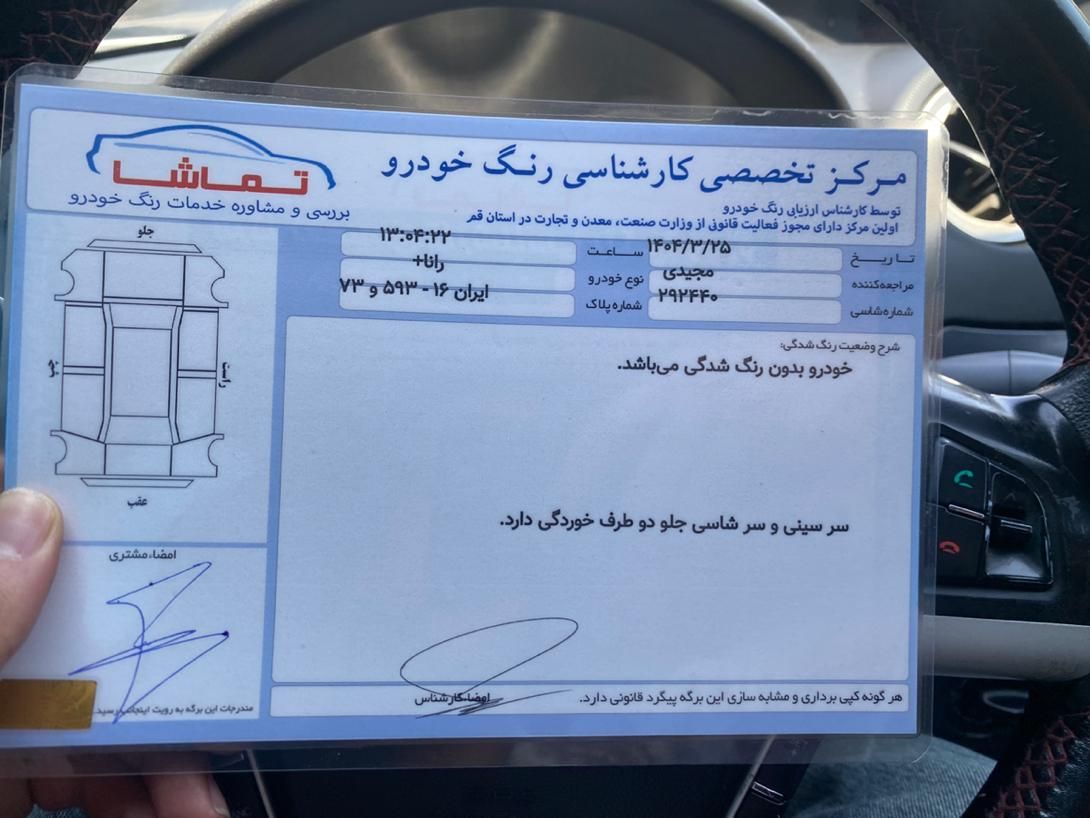 مرکز تخصصی کارشناسی رنگ خودرو
توسط کارشناس ارزیابی رنگ خودرو
اولین مرکز دارای مجوز فعالیت قانونی از وزارت صنعت، معدن و تجارت در استان قم
تماشا
بررسی و مشاوره خدمات رنگ خودرو
تاریخ ۱۴۰۴/۳/۲۵ ساعت ۱۳:۰۴:۲۲
مراجعه‌کننده مجیدی نوع خودرو رانا+
شماره شاسی ۲۹۲۴۴۰ شماره پلاک ایران ۱۶ - ۵۹۳ و ۷۳
شرح وضعیت رنگ شدگی:
خودرو بدون رنگ شدگی می‌باشد.
سر سینی و سر شاسی جلو دو طرف خوردگی دارد.
امضاء کارشناس
هر گونه کپی برداری و مشابه سازی این برگه پیگرد قانونی دارد.
جلو
راست
چپ
عقب
امضاء مشتری
مندرجات این برگه به رویت اینجانب رسید.